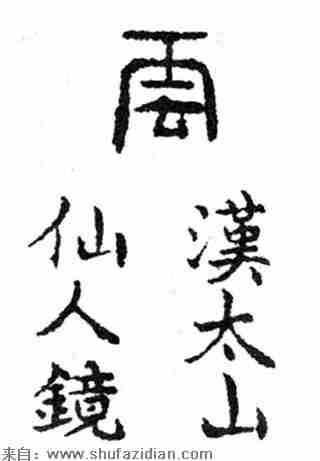 雲
漢太山
仙人鏡
来自：www.shufazidian.com